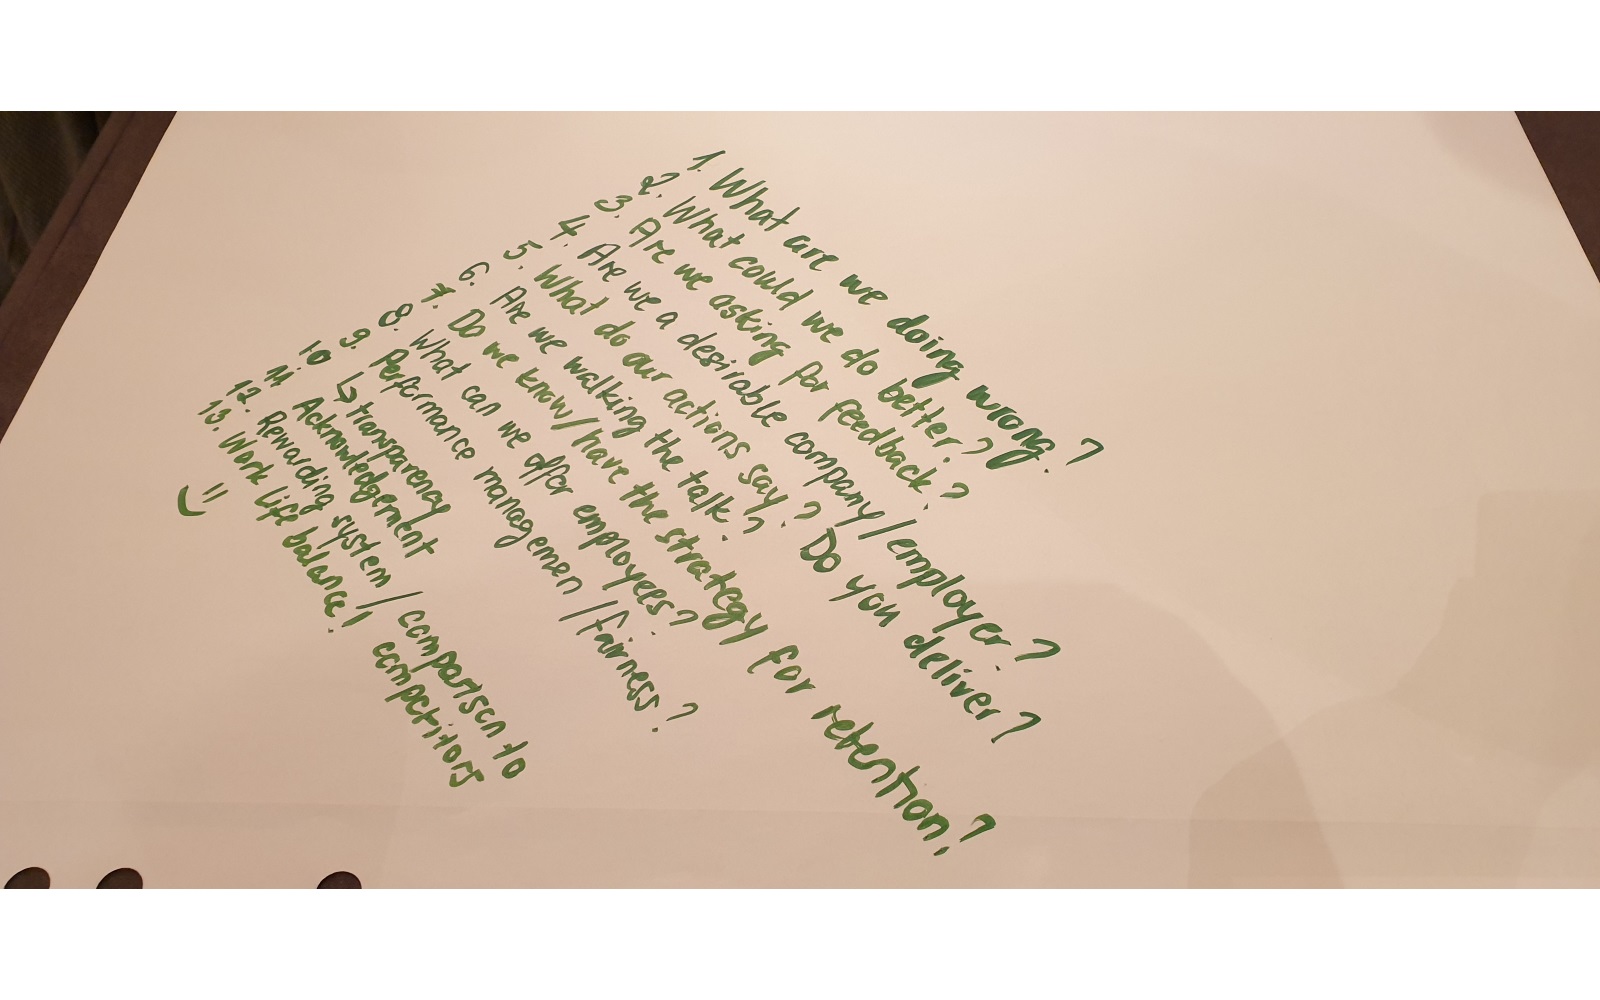 1. What are we doing wrong?
2. What could we do better?
3. Are we asking for feedback?
4. Are we a desirable company/employer?
5. What do our actions say? Do you deliver?
6. Are we walking the talk?
7. Do we know/have the strategy for retention?
8. What can we offer employees?
9. Performance managemen/fairness?
10 ↳ transparency
11. Acknowledgement
12. Rewarding system/comparison to
competitors
13. Work life balance!